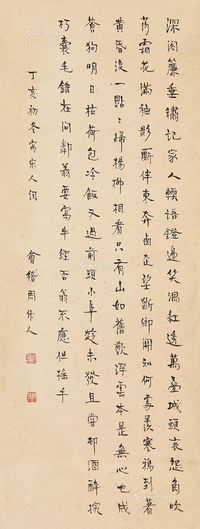 深閣簾垂繡記家人輭語鐙邊笑渦紅透萬疊城頭哀怨角吹
落霜花滿袖影厮伴東奔西走望斷鄉關知何處羨寒鴉到著
黄昏後一點點歸楊柳相看只有山如舊歎浮雲本是無心也成
蒼狗明日枯荷包冷飯又過前頭小阜趁未發且嘗村酒醉探
枵囊毛錐在問鄰翁要寫牛經否翁不應但搖手
丁亥初冬寫宋人詞 會稽周作人